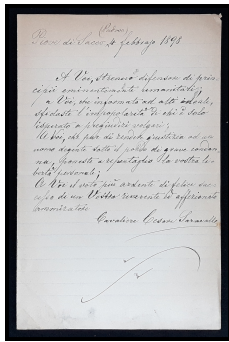 (Padova)
Piove di Sacco, 4 febbrajo 1898
A Voi, strenuo difensore di prin-
cipii eminentemente umanitari,
a Voi, che informato ad alto ideale,
sfidaste l'impopolarità di chi è solo
ispirato a pregiudizi volgari;
A Voi, che pure di rendere giustizia ad un
uomo degente sotto il pondo di grave condan-
na, poneste a repentaglio la vostra li-
bertà personale;
A Voi il voto più ardente di felice suc-
cesso di un Vostro reverente ed affezionato
ammiratore
Cavaliere Cesare Saravalle